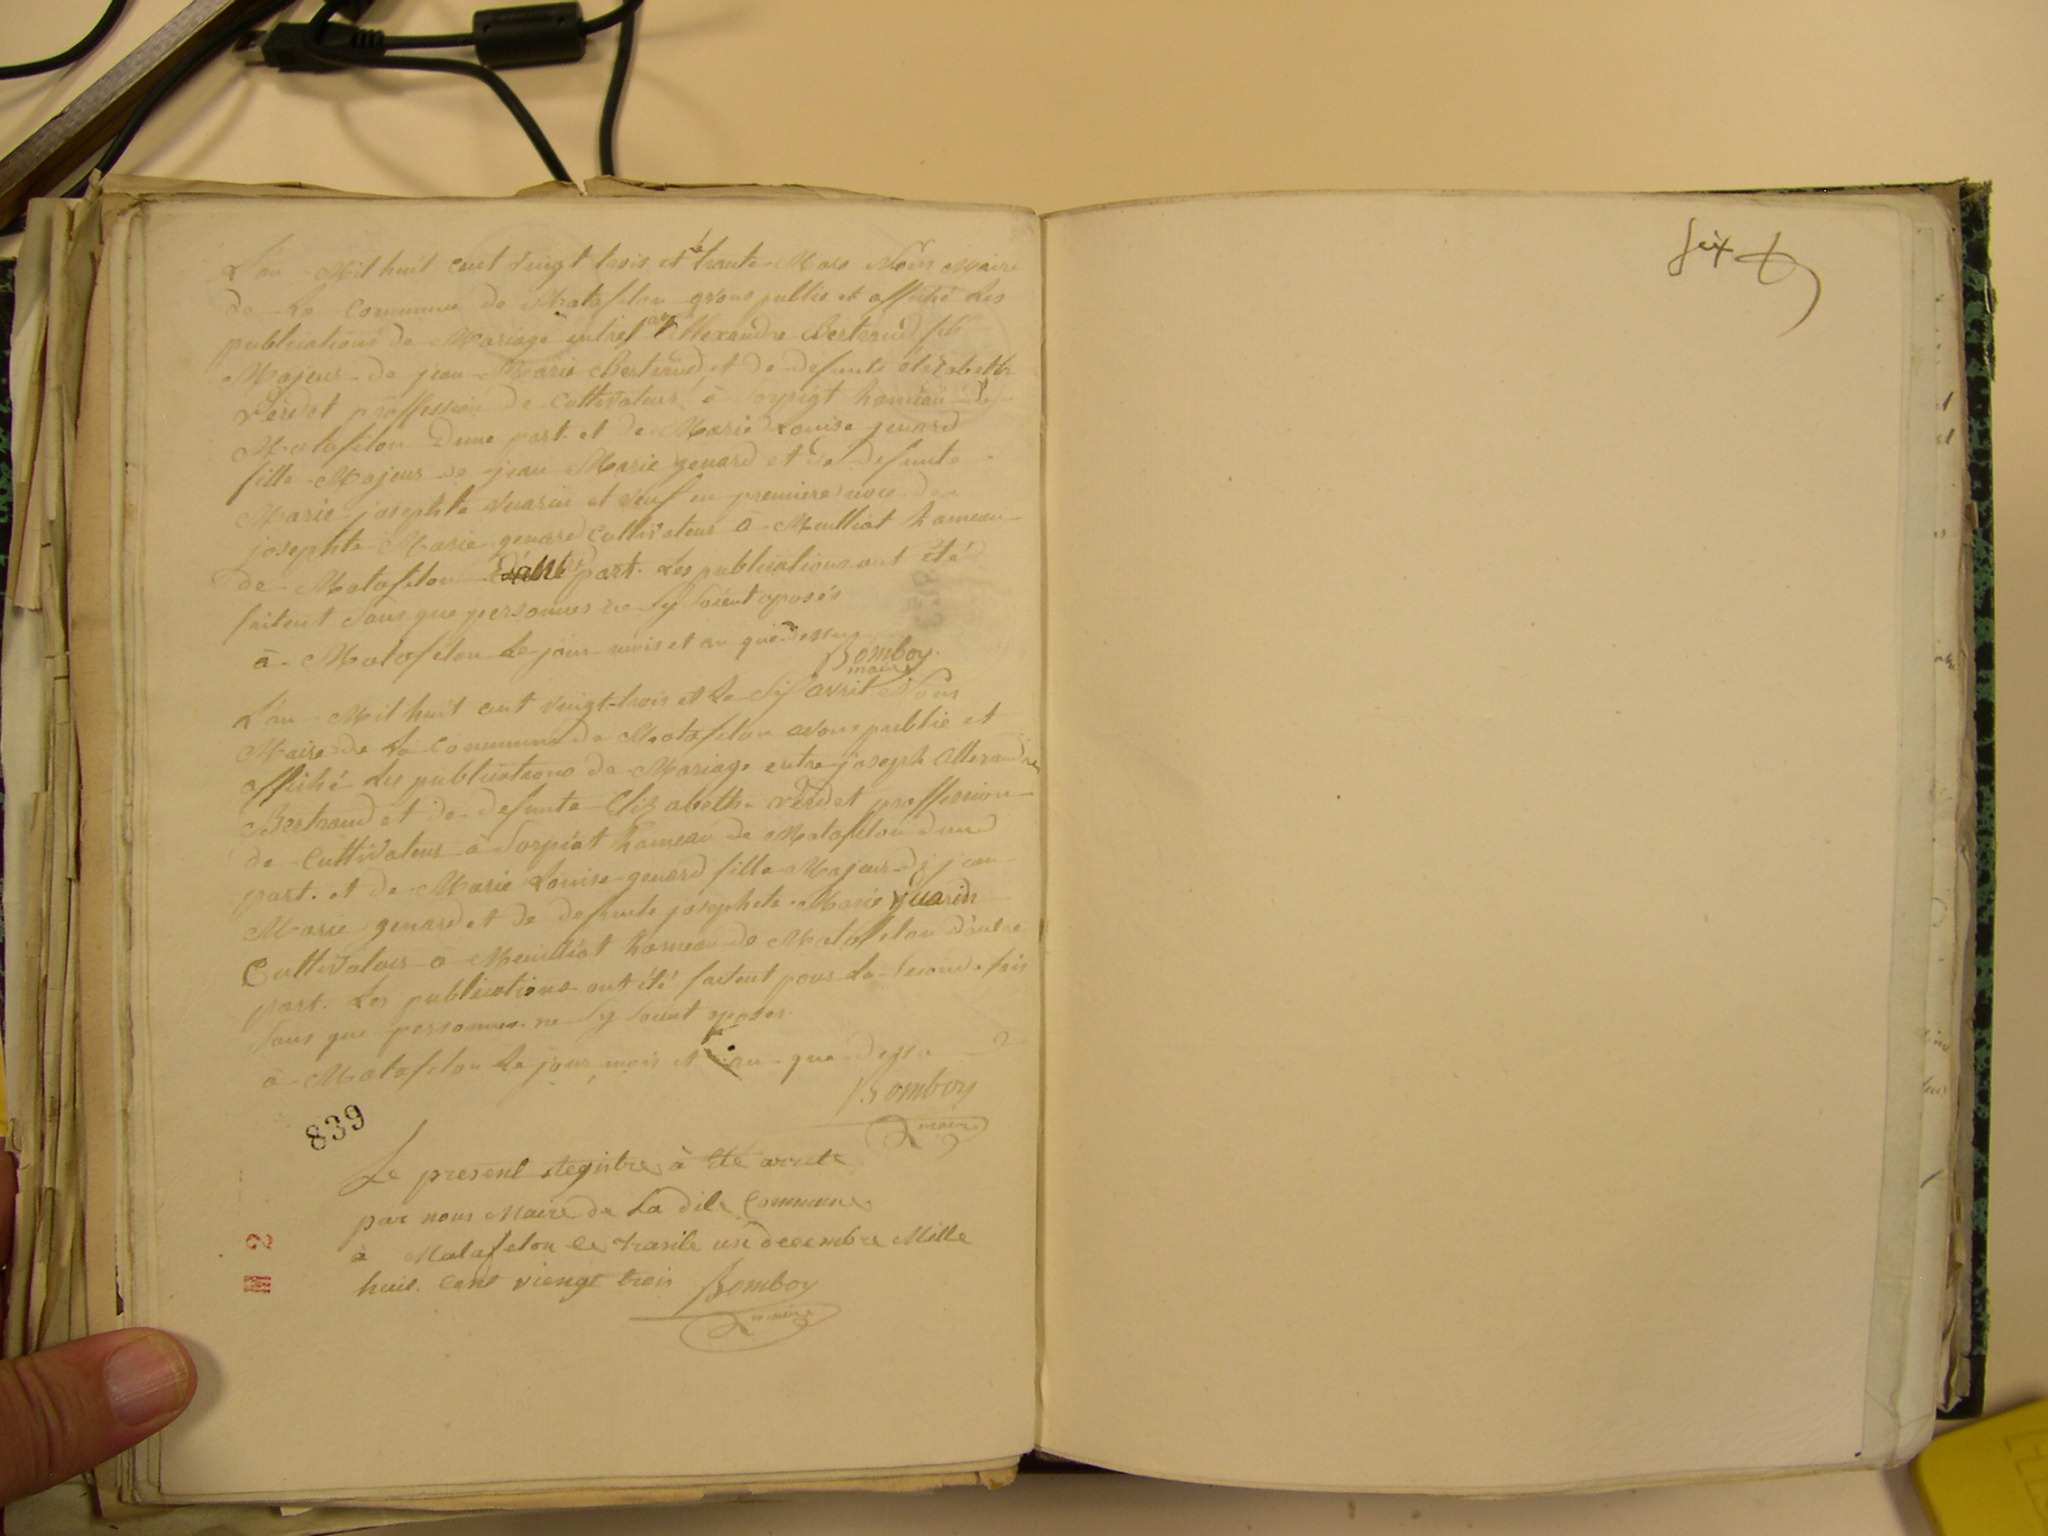 L'an Mil huit cent vingt trois et le trante Mars Nous Maire
de La Commune de Matafelon avons publié et affiché Les
publications de Mariage entre Allexandre Bertrand fils
Majeur de jean Marie Bertrand et de defunte élizabeth
Verdet proffession de Cultivateur à hameau de
Matafelon d'une part. et de Marie Louise genard
fille Majeur de jean Marie genard et de defunte
Marie josephte Vuarin et veuf en premiere noce de
josephte Marie genard Cultivateur à Meulliat hameau
de Matafelon d'autre part. Les publications ont été
faitent sans que personnes ne sy soient oposés
à Matafelon Le jour mois et an que dessus
Bomboy
maire
L'an Mil huit cent vingt-trois et Le six avril Nous
Maire de La Commune de Matafelon avons publié et
affiché Les publications de Mariage entre joseph Allexandre
Bertrand et de defunte Elizabeth Verdet proffession
de Cultivateur à Sorpiat hameau de Matafelon d'une
part. et de Marie Louise genard fille Majeur de jean
Marie genard et de defunte josephete Marie Vuarin
Cultivateur à Meulliat hameau de Matafelon d'autre
part. Les publications ont été faitent pour La seconde fois
sans que personnes ne sy soient oposer.
à Matafelon Le jour mois et an que dessu
Bomboy
maire
839
Le present Registre à été arrete
par nous Maire de La dite Commune
à Matafelon le trante un decembre Mille
huit cent viengt trois Bomboy
maire
six